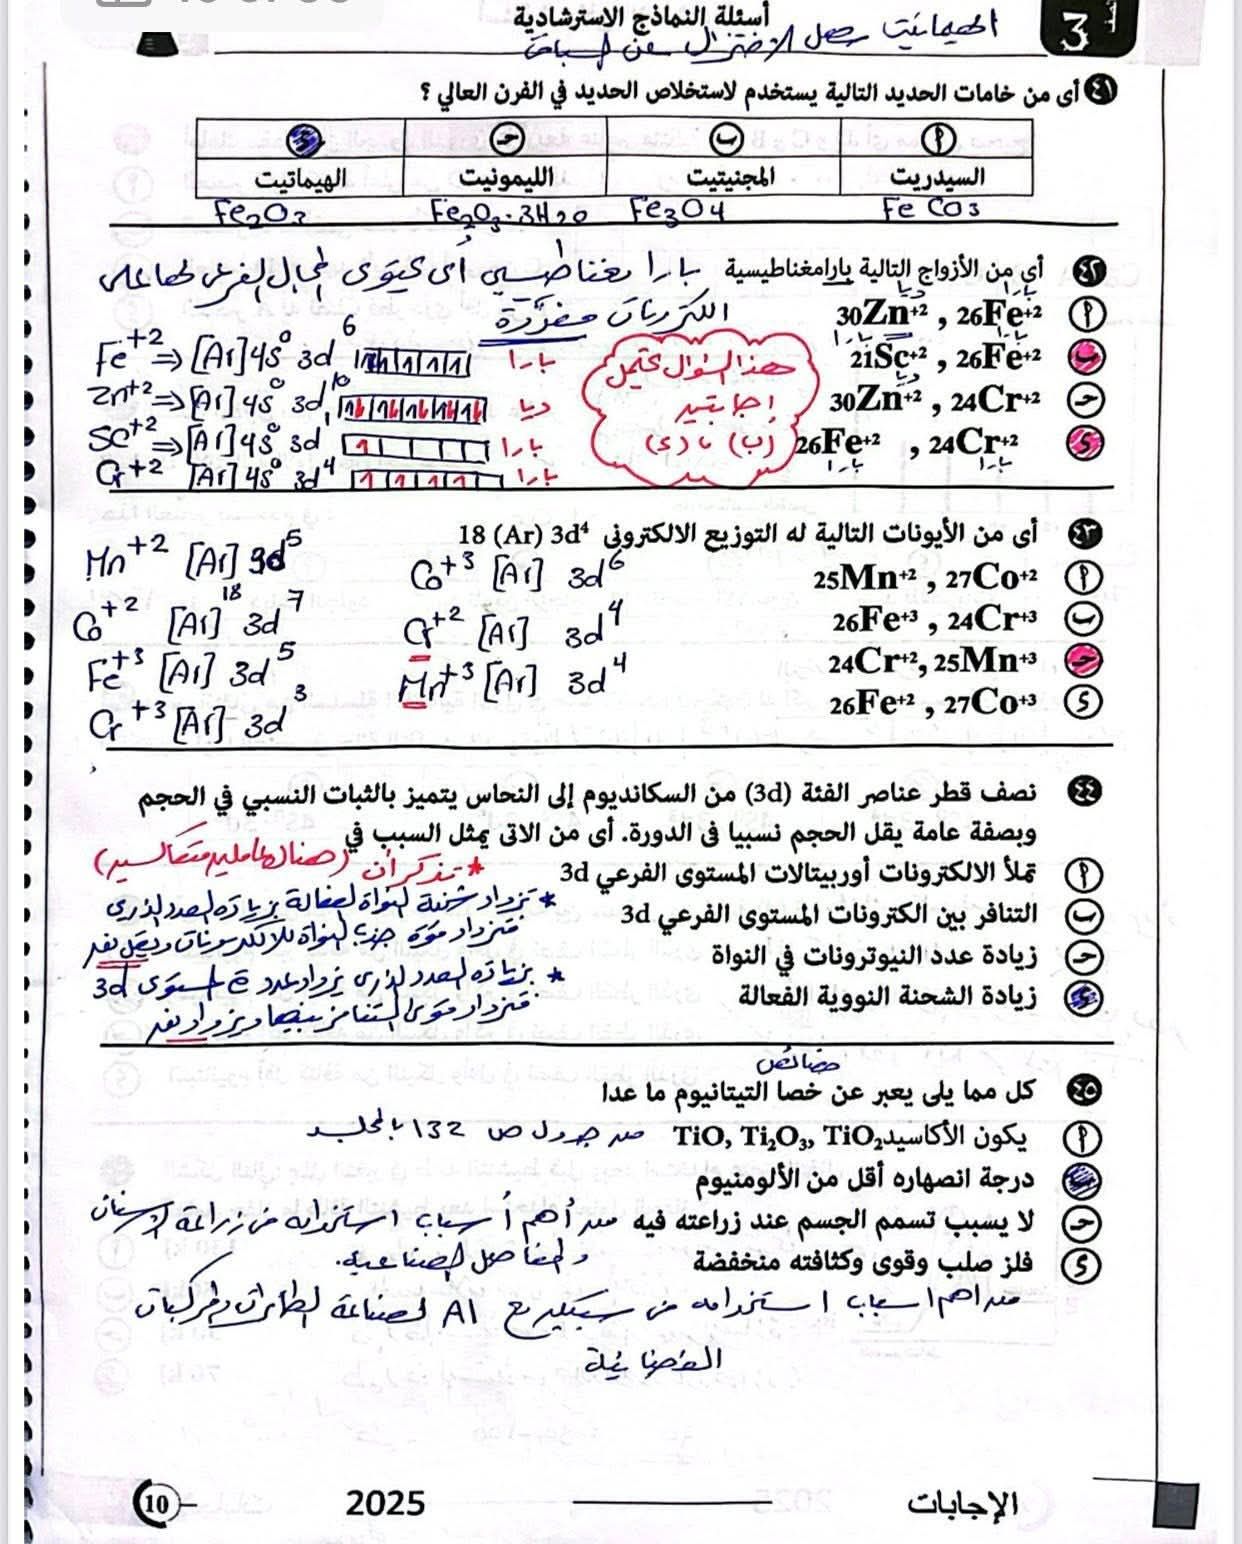 أسئلة النماذج الاسترشادية
الهيماتيت سهل الاختزال عن الباقى
٤١ أى من خامات الحديد التالية يستخدم لاستخلاص الحديد في الفرن العالي ؟
أ ب جـ د
السيدريت المجنيتيت الليمونيت الهيماتيت
FeCO3 Fe3O4 Fe2O3.3H2O Fe2O3
٤٢ أي من الأزواج التالية بارامغناطيسية بارا مغناطيسي أى يحتوى المجال الفرعى لها على
الكترونات مفردة
أ 30Zn+2 , 26Fe+2 ديا بارا
ب 21Sc+2 , 26Fe+2 بارا بارا
جـ 30Zn+2 , 24Cr+2 ديا
د 26Fe+2 , 24Cr+2 بارا بارا
هذا السؤال يحتمل
إجابتين
(ب) ، (د)
Fe+2 ⇒ [Ar] 4s0 3d6 بارا
Zn+2 ⇒ [Ar] 4s0 3d10 ديا
Sc+2 ⇒ [Ar] 4s0 3d1 بارا
Cr+2 [Ar] 4s0 3d4 بارا
٤٣ أى من الأيونات التالية له التوزيع الالكترونى 18 (Ar) 3d4
أ 25Mn+2 , 27Co+2
ب 26Fe+3 , 24Cr+3
جـ 24Cr+2, 25Mn+3
د 26Fe+2 , 27Co+3
Co+3 [Ar] 3d6
Cr+2 [Ar] 3d4
Mn+3 [Ar] 3d4
Mn+2 [Ar] 3d5
Co+2 [Ar]18 3d7
Fe+3 [Ar] 3d5
Cr+3 [Ar] 3d3
٤٤ نصف قطر عناصر الفئة (3d) من السكانديوم إلى النحاس يتميز بالثبات النسبي في الحجم
وبصفة عامة يقل الحجم نسبيا فى الدورة. أى من الاتى يمثل السبب في
أ تملأ الالكترونات أوربيتالات المستوى الفرعي 3d
ب التنافر بين الكترونات المستوى الفرعي 3d
جـ زيادة عدد النيوترونات في النواة
د زيادة الشحنة النووية الفعالة
* تذكر أن (هناك عاملين متعاكسين)
* تزداد شحنة النواة الفعالة بزيادة العدد الذرى
فتزداد قوة جذب النواة للالكترونات ويقل نق
* بزيادة العدد الذرى يزداد عدد e المستوى 3d
فتزداد قوى التنافر بينها ويزداد نق
خصائص
٤٥ كل مما يلى يعبر عن خصا التيتانيوم ما عدا
أ يكون الأكاسيد TiO, Ti2O3, TiO2 من جدول ص 132 بالمجلد
ب درجة انصهاره أقل من الألومنيوم
جـ لا يسبب تسمم الجسم عند زراعته فيه من أهم أسباب استخدامه فى زراعة الاسنان
والمفاصل الصناعية.
د فلز صلب وقوى وكثافته منخفضة
من اهم اسباب استخدامه فى سبيكة مع Al لصناعة الطائرات والمركبات
الفضائية
الإجابات
2025
10